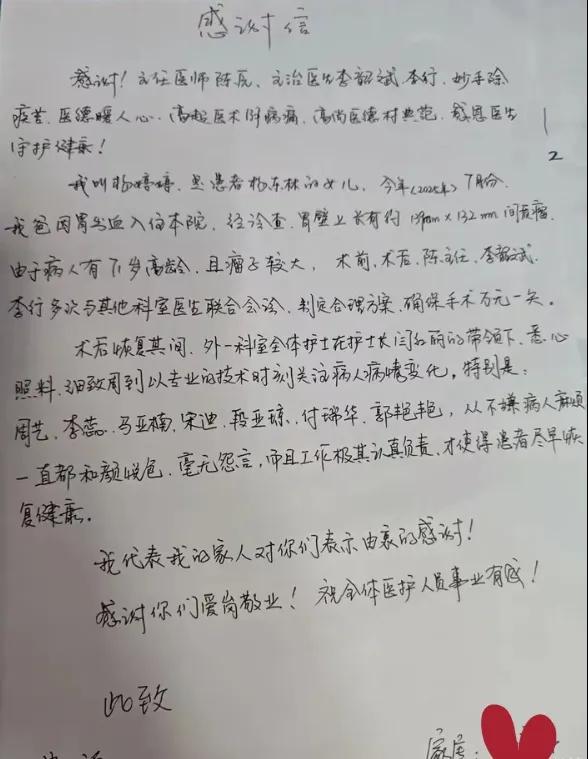 感谢信
感谢！主任医师陈辰、主治医生李韶斌、李行，妙手除
疾苦，医德暖人心，高超医术解病痛，高尚医德树典范，感恩医生
守护健康！
我叫杨婷婷，是患者杨东林的女儿，今年（2025年）7月份，
我爸因胃出血入住本院，经诊查，胃壁上长有约139mm×132mm间质瘤，
由于病人有71岁高龄，且瘤子较大，术前、术后，陈主任、李韶斌、
李行多次与其他科室医生联合会诊，制定合理方案，确保手术万无一失。
术后恢复其间，外一科室全体护士在护士长闫红丽的带领下，悉心
照料，细致周到以专业的技术时刻关注病人病情变化，特别是：
周艺、李蕊、马亚楠、宋迪、段亚琼、付瑞华、郭艳艳，从不嫌病人麻烦
一直都和颜悦色，毫无怨言，而且工作极其认真负责，才使得患者尽早恢
复健康。
我代表我的家人对你们表示由衷的感谢！
感谢你们爱岗敬业！祝全体医护人员事业有成！
此致
家属：
1
2